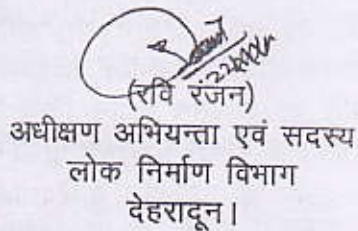 (रवि रंजन)
अधीक्षण अभियन्ता एवं सदस्य
लोक निर्माण विभाग
देहरादून।